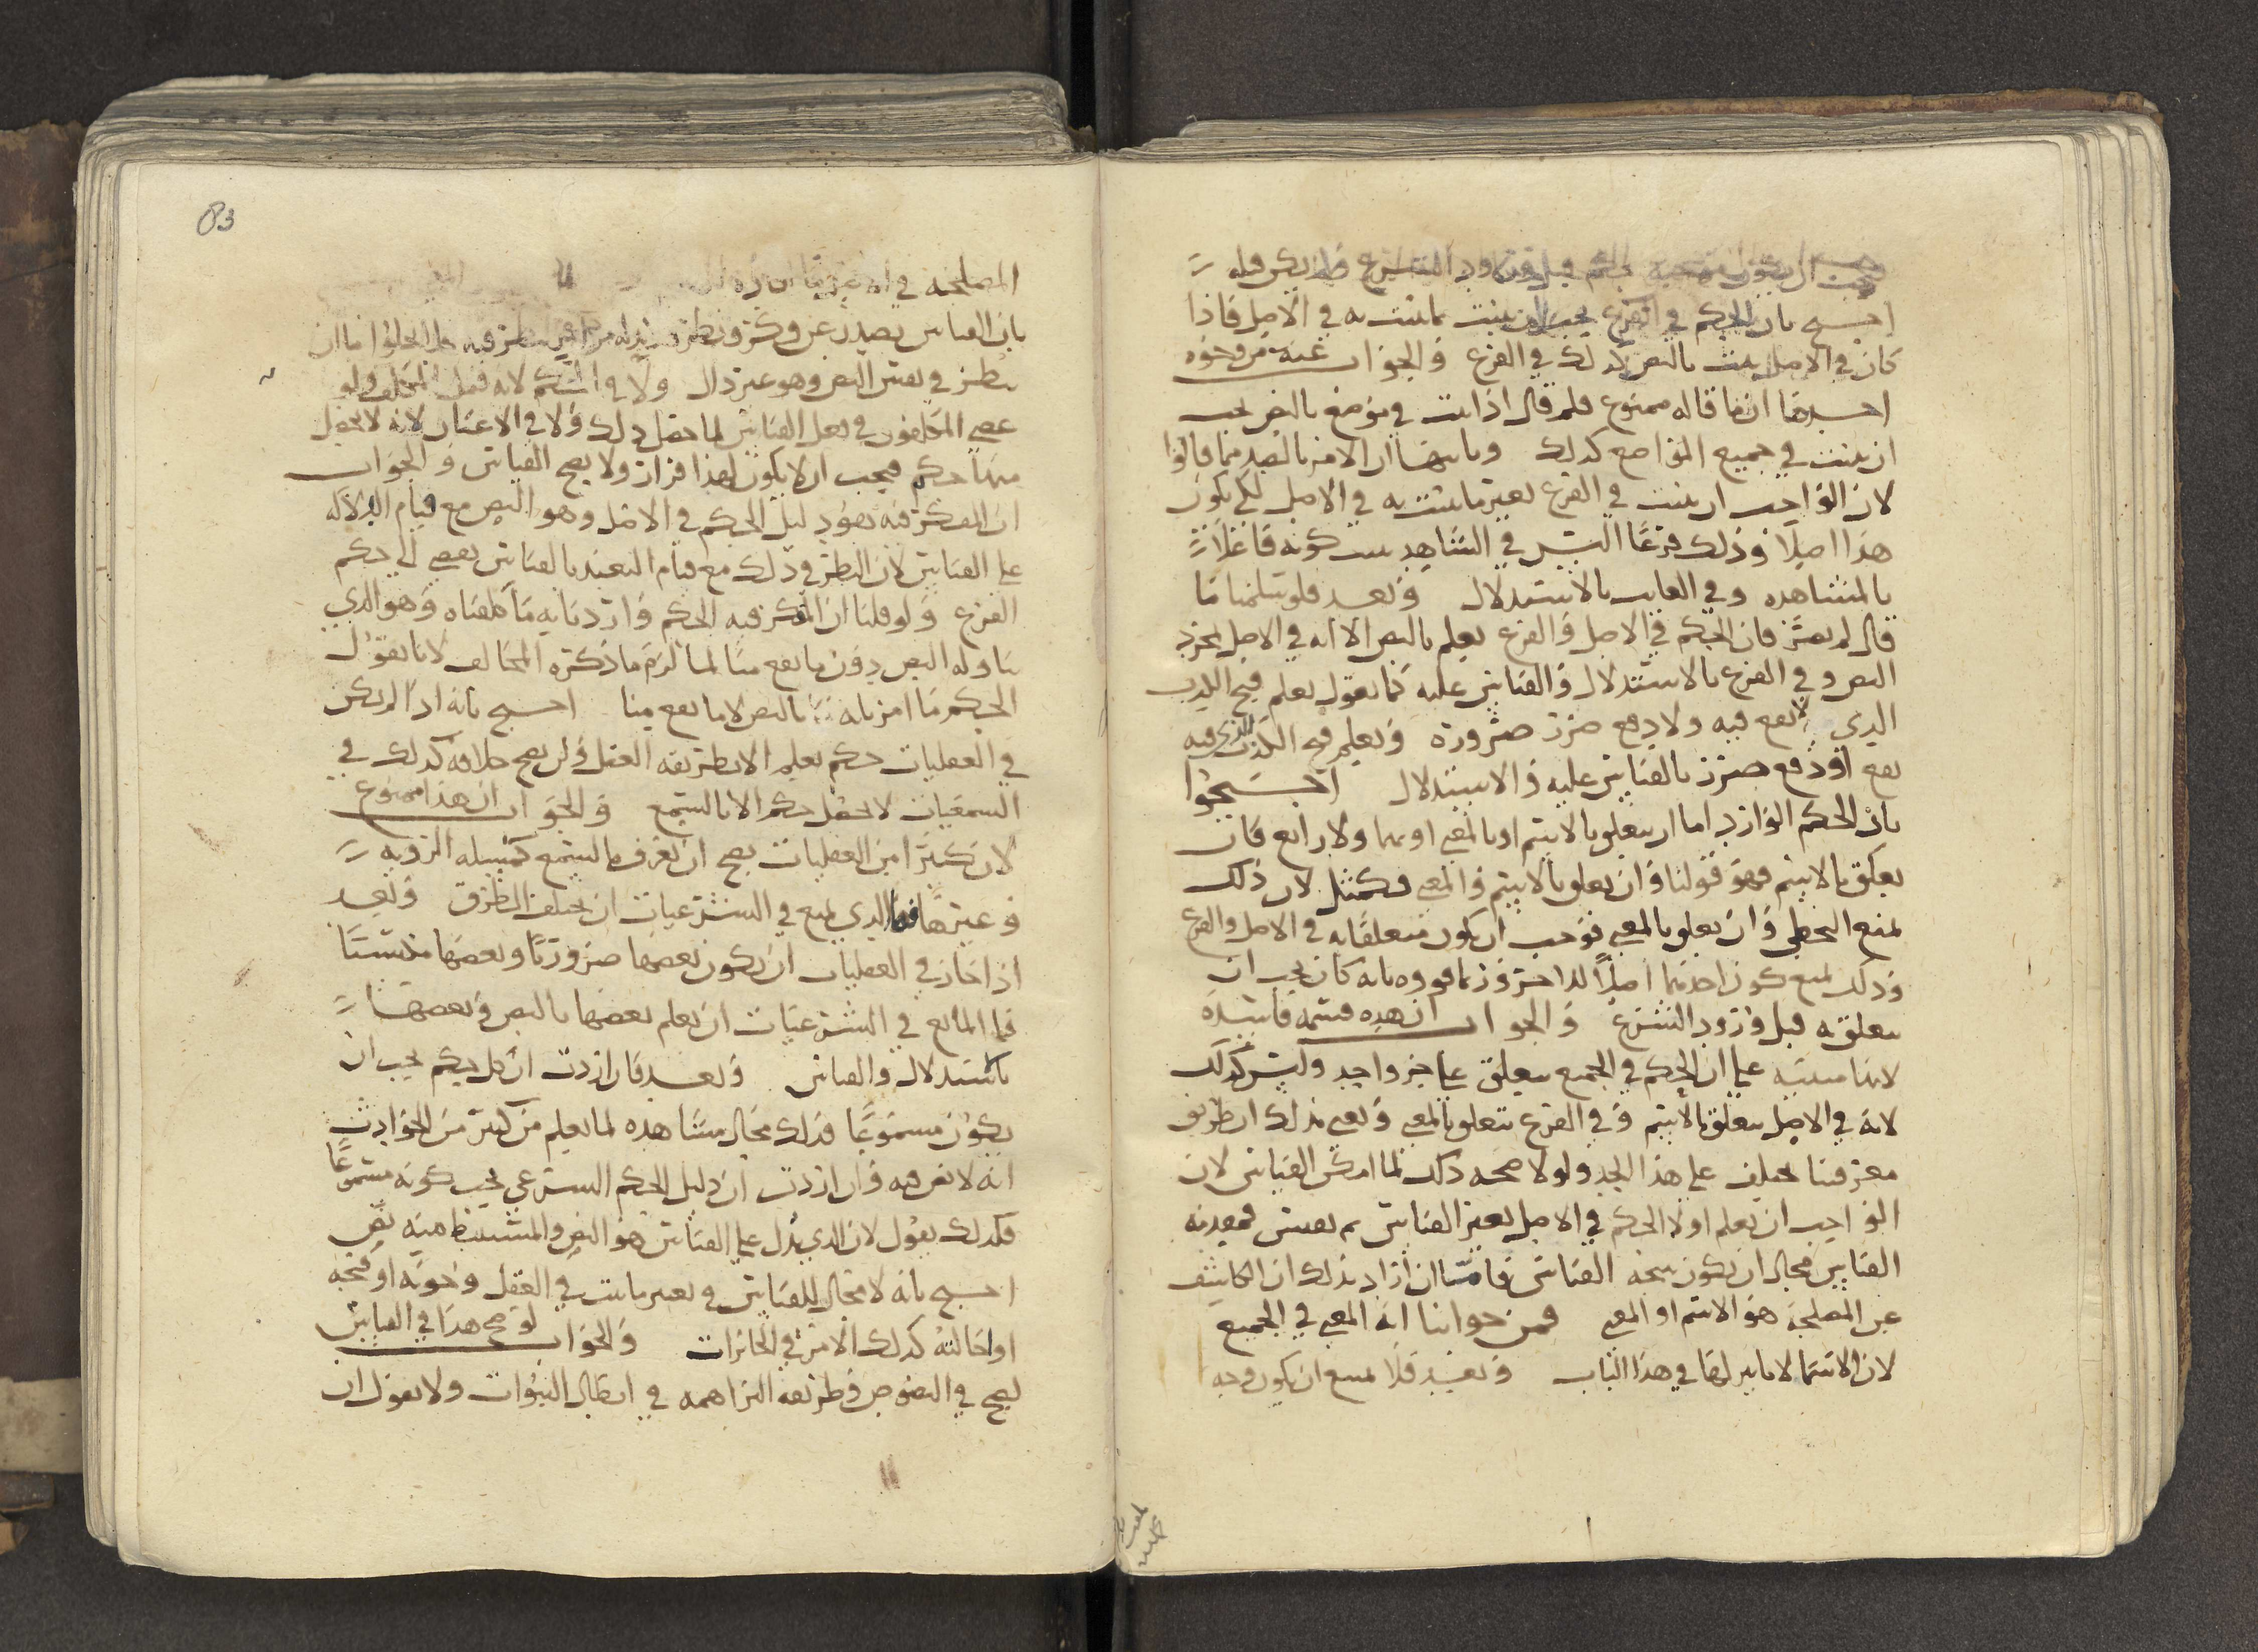 احتج بان الحكم في الفرع يجب ان يثبت بما يثبت به في الاصل فاذا
كان في الاصل يثبت بالنص كذلك في الفرع والجواب عنه من وجوه
احدها ان ما قاله ممنوع فلم قال اذا ثبت في موضع بالنص يجب
ان يثبت في جميع المواضع كذلك وثانيها ان الامر بالضد مما قالوا
لان الواجب ان يثبت في الفرع بغير ما يثبت به في الاصل لكي يكون
هذا اصلا وذلك فرعا اليس في الشاهد يثبت كونه فاعلا
بالمشاهده وفي الغايب بالاستدلال وبعد فلو سلمنا ما
قال لم يضر فان الحكم في الاصل والفرع يعلم بالنص الا انه في الاصل بمجرد
النص وفي الفرع بالاستدلال والقياس عليه كما نقول يعلم قبح الكذب
الذي لا نفع فيه ولا دفع ضرر ضرورة ويعلم قبح الكذب الذي فيه
نفع او دفع ضرر بالقياس عليه والاستدلال احتجوا
بان الحكم الوارد اما ان يتعلق بالاسم او بالمعنى او بهما ولا رابع فان
تعلق بالاسم فهو قولنا وان تعلق بالاسم والمعنى فكمثل لان ذلك
يمنع التخطي وان تعلق بالمعنى فوجب ان يكون متعلقا به في الاصل والفرع
وذلك يمنع كون احدهما اصلا للاخر وربما قووه بانه كان يجب ان
يتعلق به قبل ورود الشرع والجواب ان هذه قسمة فاسدة
لانها مبنيه على ان الحكم في الجميع يتعلق على حد واحد وليس كذلك
لانه في الاصل يتعلق بالاسم وفي الفرع يتعلق بالمعنى ونعني بذلك ان طريق
معرفتنا يختلف على هذا الحد ولولا صحه ذلك لما امكن القياس لان
الواجب ان يعلم اولا الحكم في الاصل بغير القياس ثم يقيس فمعرفة
القياس محال ان يكون نتيجه القياس فاما ان اراد بذلك ان الكاشف
عن المصلحة هو الاسم او المعنى فمن جوابنا انه المعنى في الجميع
لان الاسما لا تاثير لها في هذا الباب وبعد فلا يمتنع ان يكون وجه
83
المصلحه في
بان القياس يصدر عن فكر ونظر
ينظر في نفس النص وهو غير دال ولا في الحكم لانه فعل المكلف ولو
عصى المكلفون في فعل القياس لما حصل ذلك ولا في الاعيان لانه لا يحصل
منها حكم فيجب ان لا يكون لهذا قرار ولا يصح القياس والجواب
ان المفكر فيه هو دليل الحكم في الاصل وهو النص مع قيام الدلاله
على القياس لان النظر في ذلك مع قيام التعبد بالقياس يفضي الى حكم
الفرع ولو قلنا ان المفكر فيه الحكم واردنا به ما كلفناه وهو الذي
تناوله النص دون ما يقع منا لما لزم ما ذكره المخالف لانا نقول
الحكم ما امرنا به بالنص لا ما يقع منا احتج بانه اذا لم يكن
في العقليات حكم يعلم الا بطريقه العقل ولن يصح خلافه كذلك في
السمعيات لا يحصل حكم الا بالسمع والجواب ان هذا ممنوع
لان كثيرا من العقليات يصح ان يعرف بالسمع كمسله الرويه
وغيرها فما الذي يمنع في الشرعيات ان يختلف الطرق وبعد
اذا جاز في العقليات ان يكون بعضها ضروريا وبعضها مكتسبا
فما المانع في الشرعيات ان يعلم بعضها بالنص وبعضها
باستدلال والقياس وبعد فان اردت ان كل حكم يجب ان
يكون مسموعا فذلك محال مشاهده لما يعلم من كثير من الحوادث
انه لا نص فيه وان اردت ان دليل الحكم الشرعي يجب كونه مسموعا
فكذلك نقول لان الذي يدل على القياس هو النص والمستنبط منه نص
احتج بانه لا مجال للقياس في تغير ما ثبت في العقل وجوبه او قبحه
او احالته كذلك الامر في الجائزات والجواب لو صح هذا في القياس
لصح في النصوص وطريقه البراهمه في ابطال النبوات ولا نقول ان